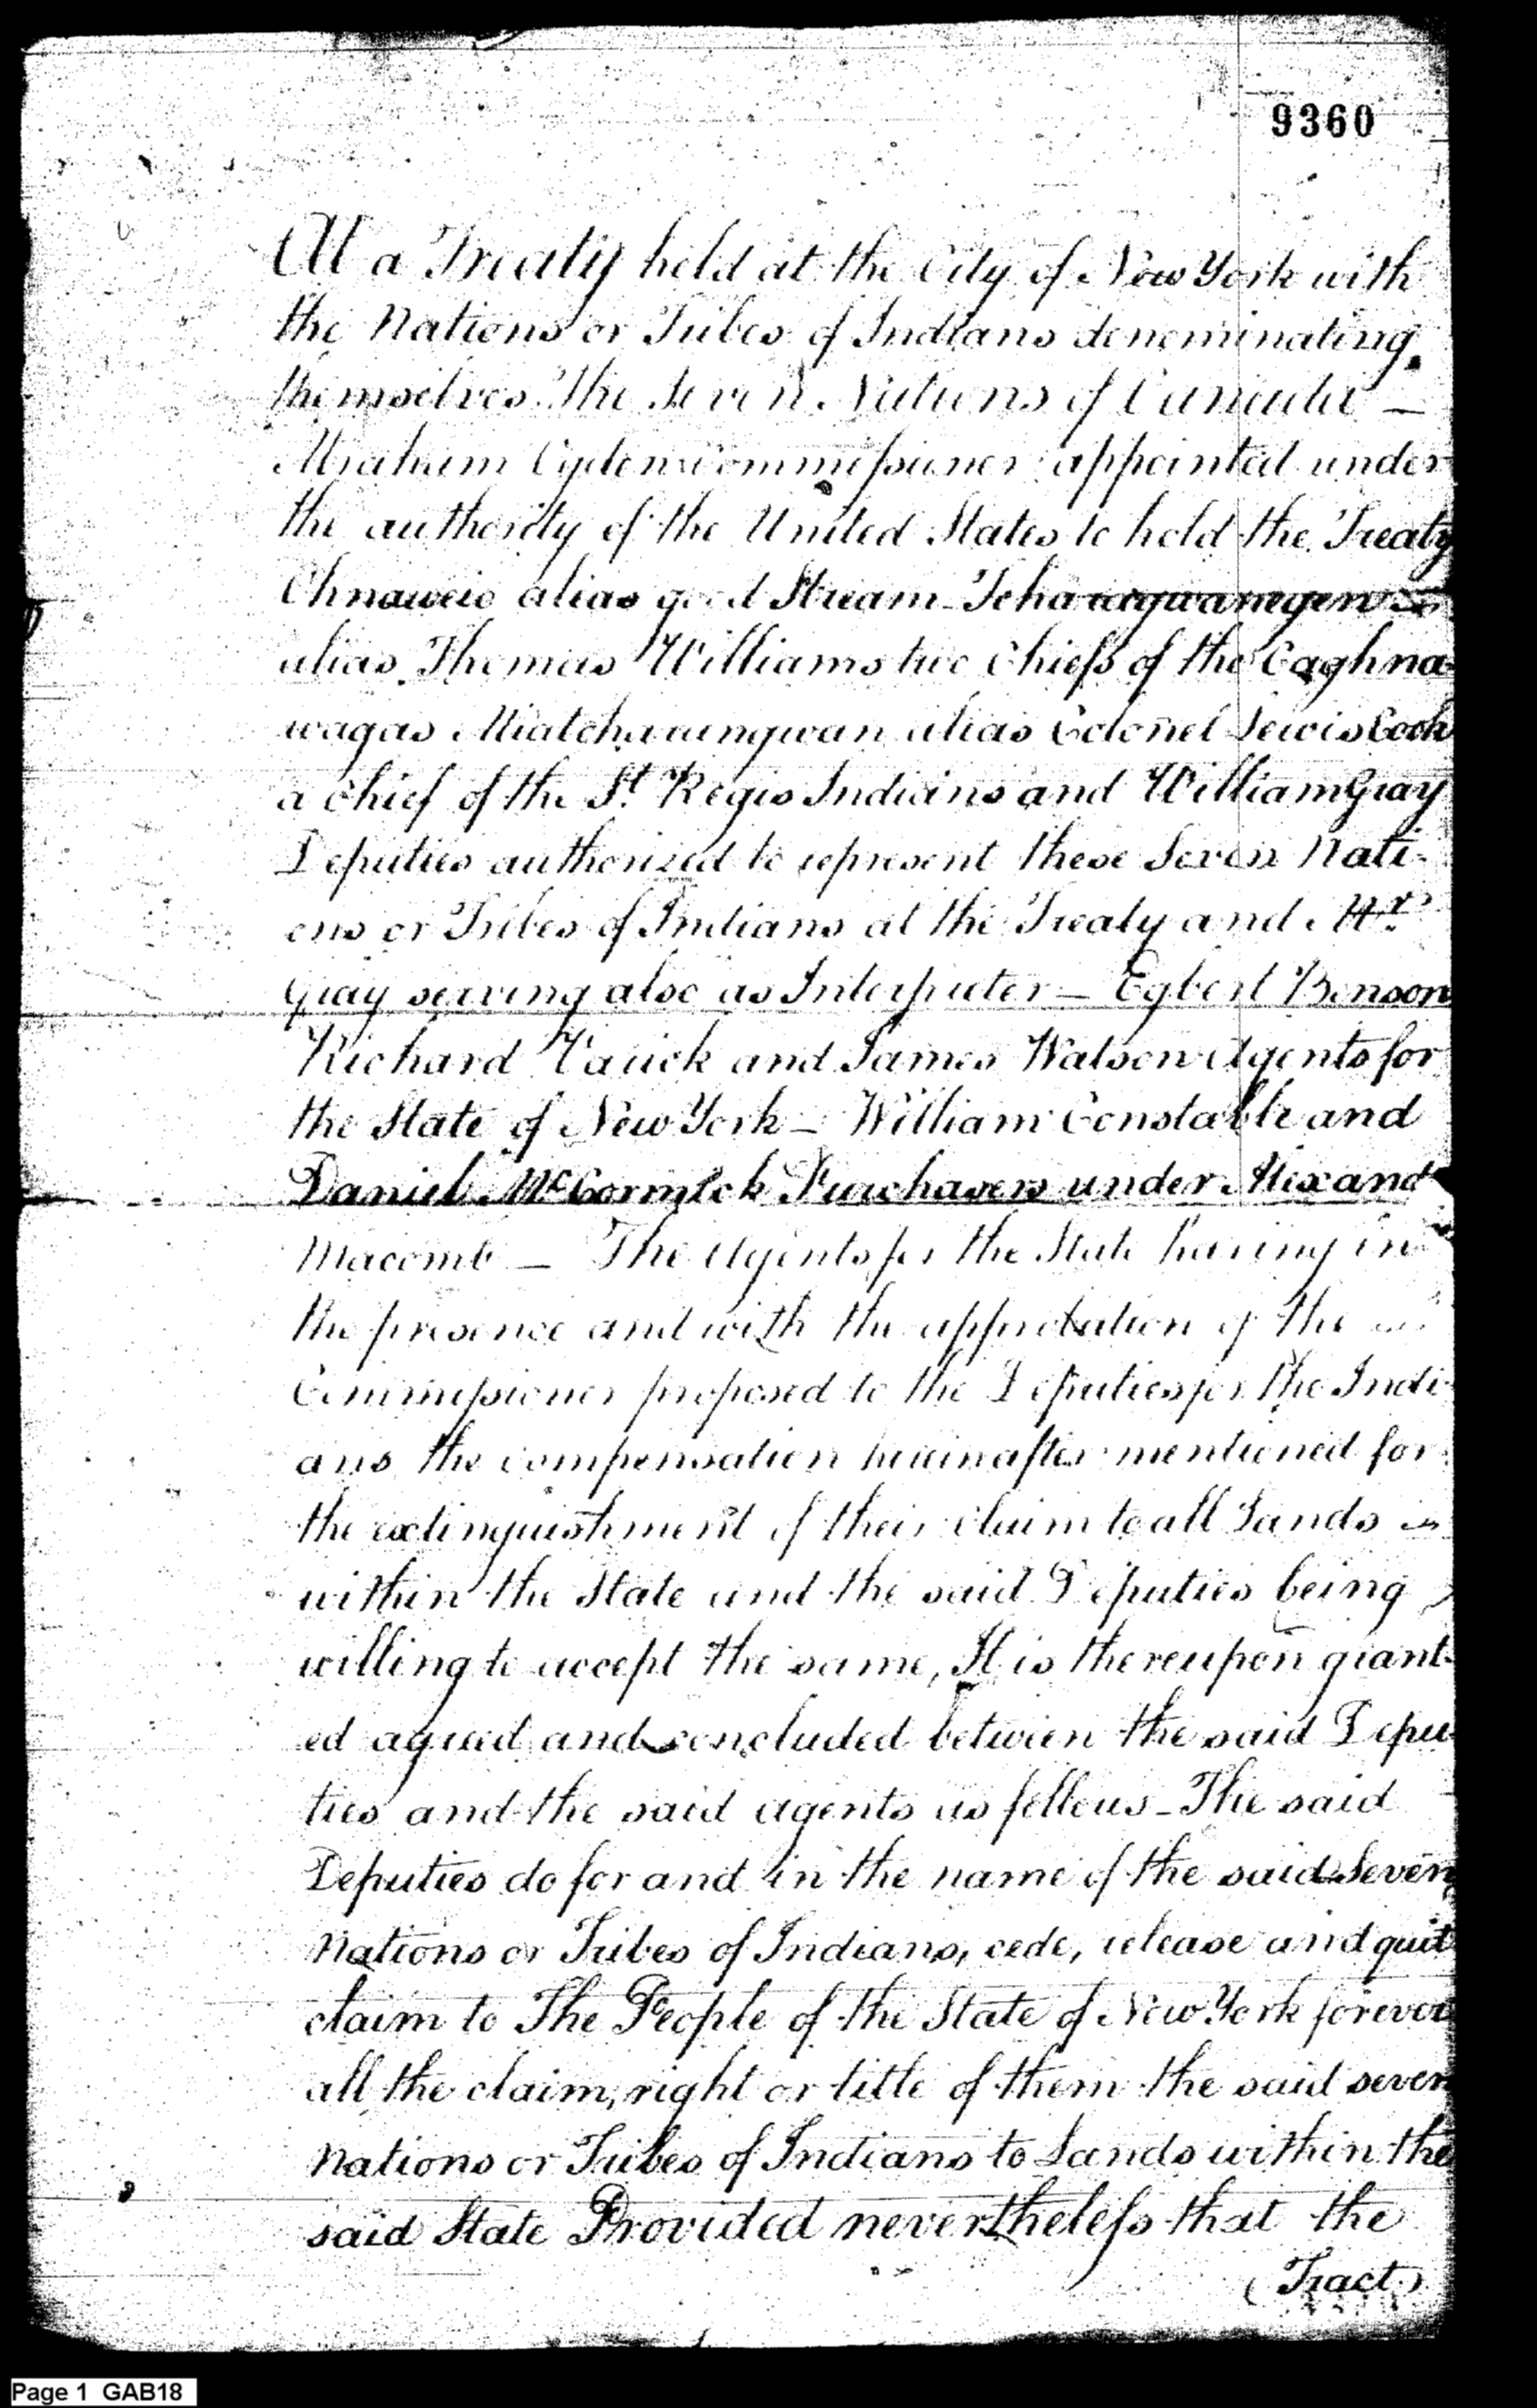 9360
At a Treaty held at the City of New York with
the Nations or Tribes of Indians denominating
themselves The Seven Nations of Canada —
Abraham Ogden Commissioner appointed under
the authority of the United States to hold the Treaty
Ohnaweio alias good Stream
alias Thomas Williams two Chiefs of the Caghna-
wagas alias Colonel Lewis Cook
a chief of the St. Regis Indians and William Gray
Deputies authorized to represent these Seven Nati-
ons or Tribes of Indians at the Treaty and Mr.
Gray serving also as Interpreter — Egbert Benson
Richard Varick and James Watson Agents for
the State of New York — William Constable and
Daniel McCormick Purchasers under Alexand
Macomb — The Agents for the State having in
the presence and with the approbation of the
Commissioner proposed to the Deputies for the Indi-
ans the compensation hereinafter mentioned for
the extinguishment of their claim to all Lands
within the State and the said Deputies being
willing to accept the same, It is thereupon grant-
ed agreed and concluded between the said Depu-
ties and the said agents as follows — The said
Deputies do for and in the name of the said Seven
Nations or Tribes of Indians, cede, release and quit
claim to The People of the State of New York forever
all the claim, right or title of them the said seven
Nations or Tribes of Indians to Lands within the
said State Provided nevertheless that the
(Tract)
Page 1 GAB18